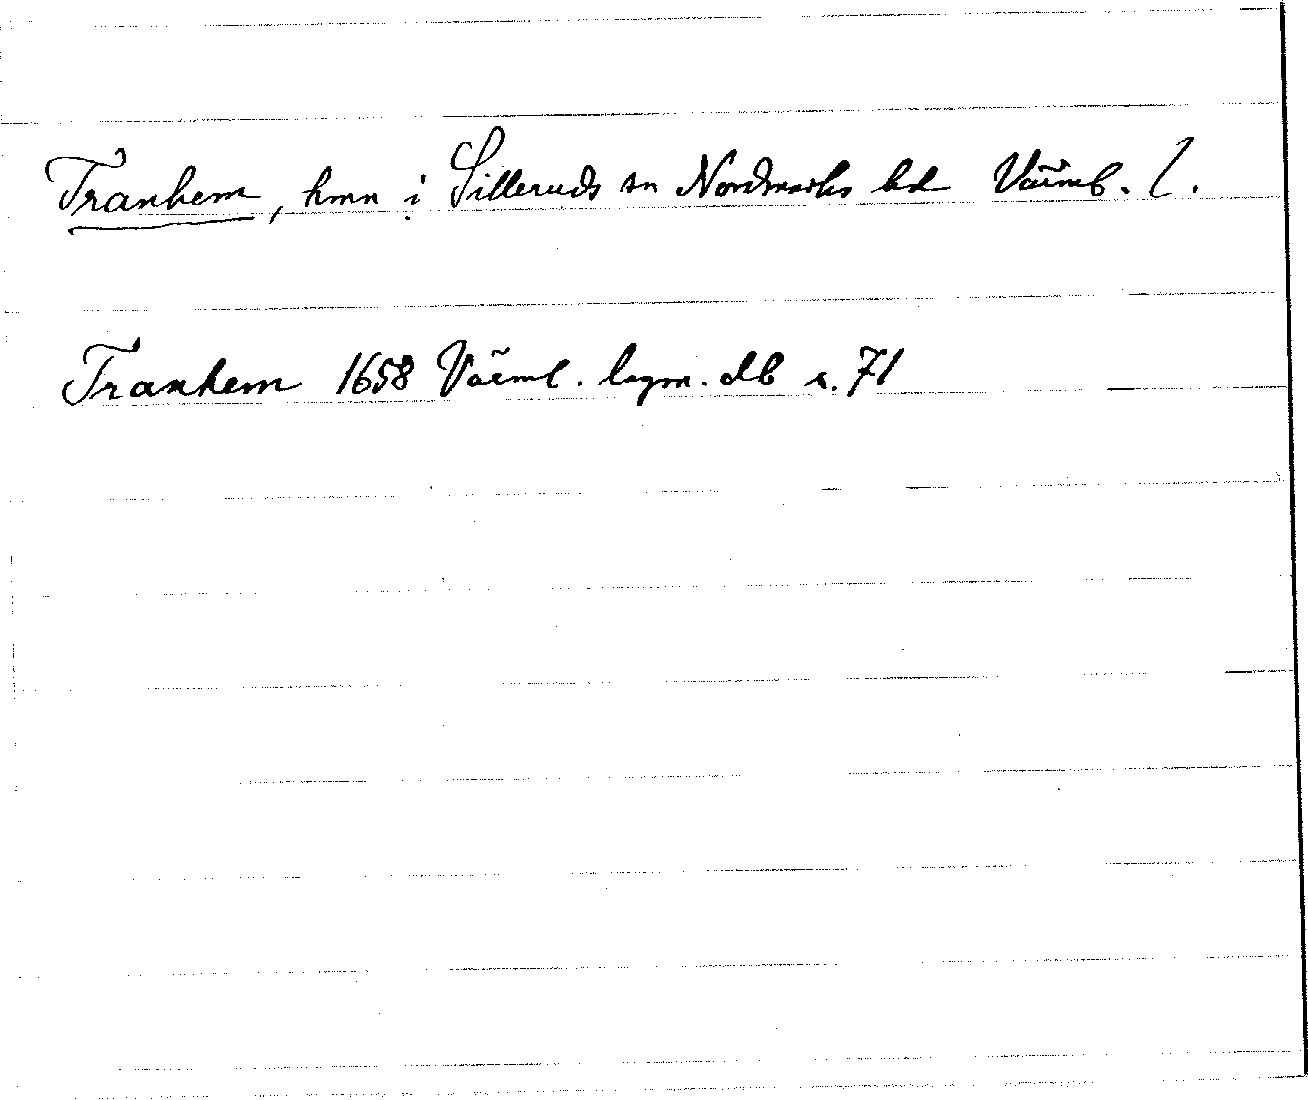 Tranhem, hmn i Silleruds sn Nordmarks hd Värml. l.
Tranhem 1658 Värml. lagm. db s. 71